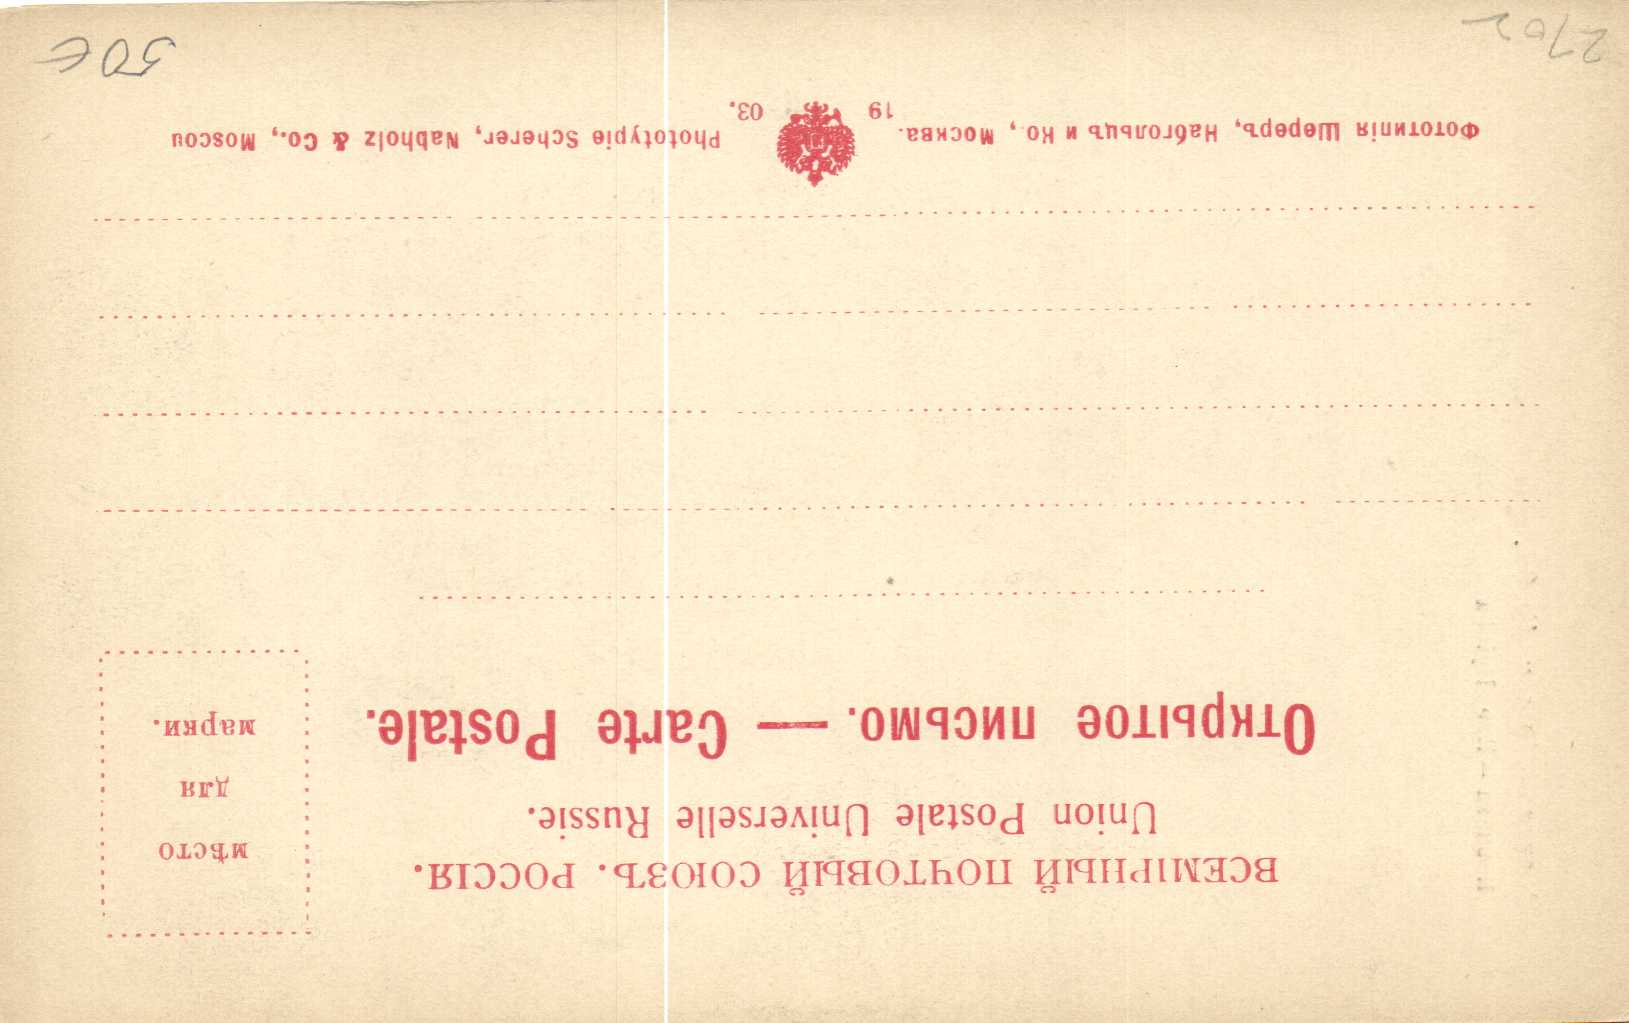 ВСЕМІРНЫЙ ПОЧТОВЫЙ СОЮЗЪ. РОССІЯ.
Union Postale Universelle Russie.
Открытое письмо. — Carte Postale.
мѣсто
для
марки.
Фототипія Шереръ, Набгольцъ и Ко., Москва. 19 03. Phototypie Scherer, Nabholz & Co., Moscou
50 €